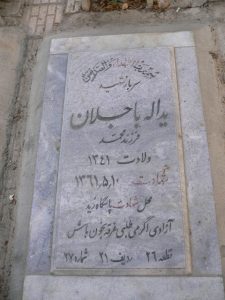 سرباز شهید
یداله باجلان
فرزند محمد
ولادت ۱۳۴۱
شهادت ۱۳۶۱٫۵٫۱۰
محل شهادت پاسگاه زید
آزادی اگر می طلبی غرقه بخون باش
قطعه ۲۶ ردیف ۲۱ شماره ۲۷